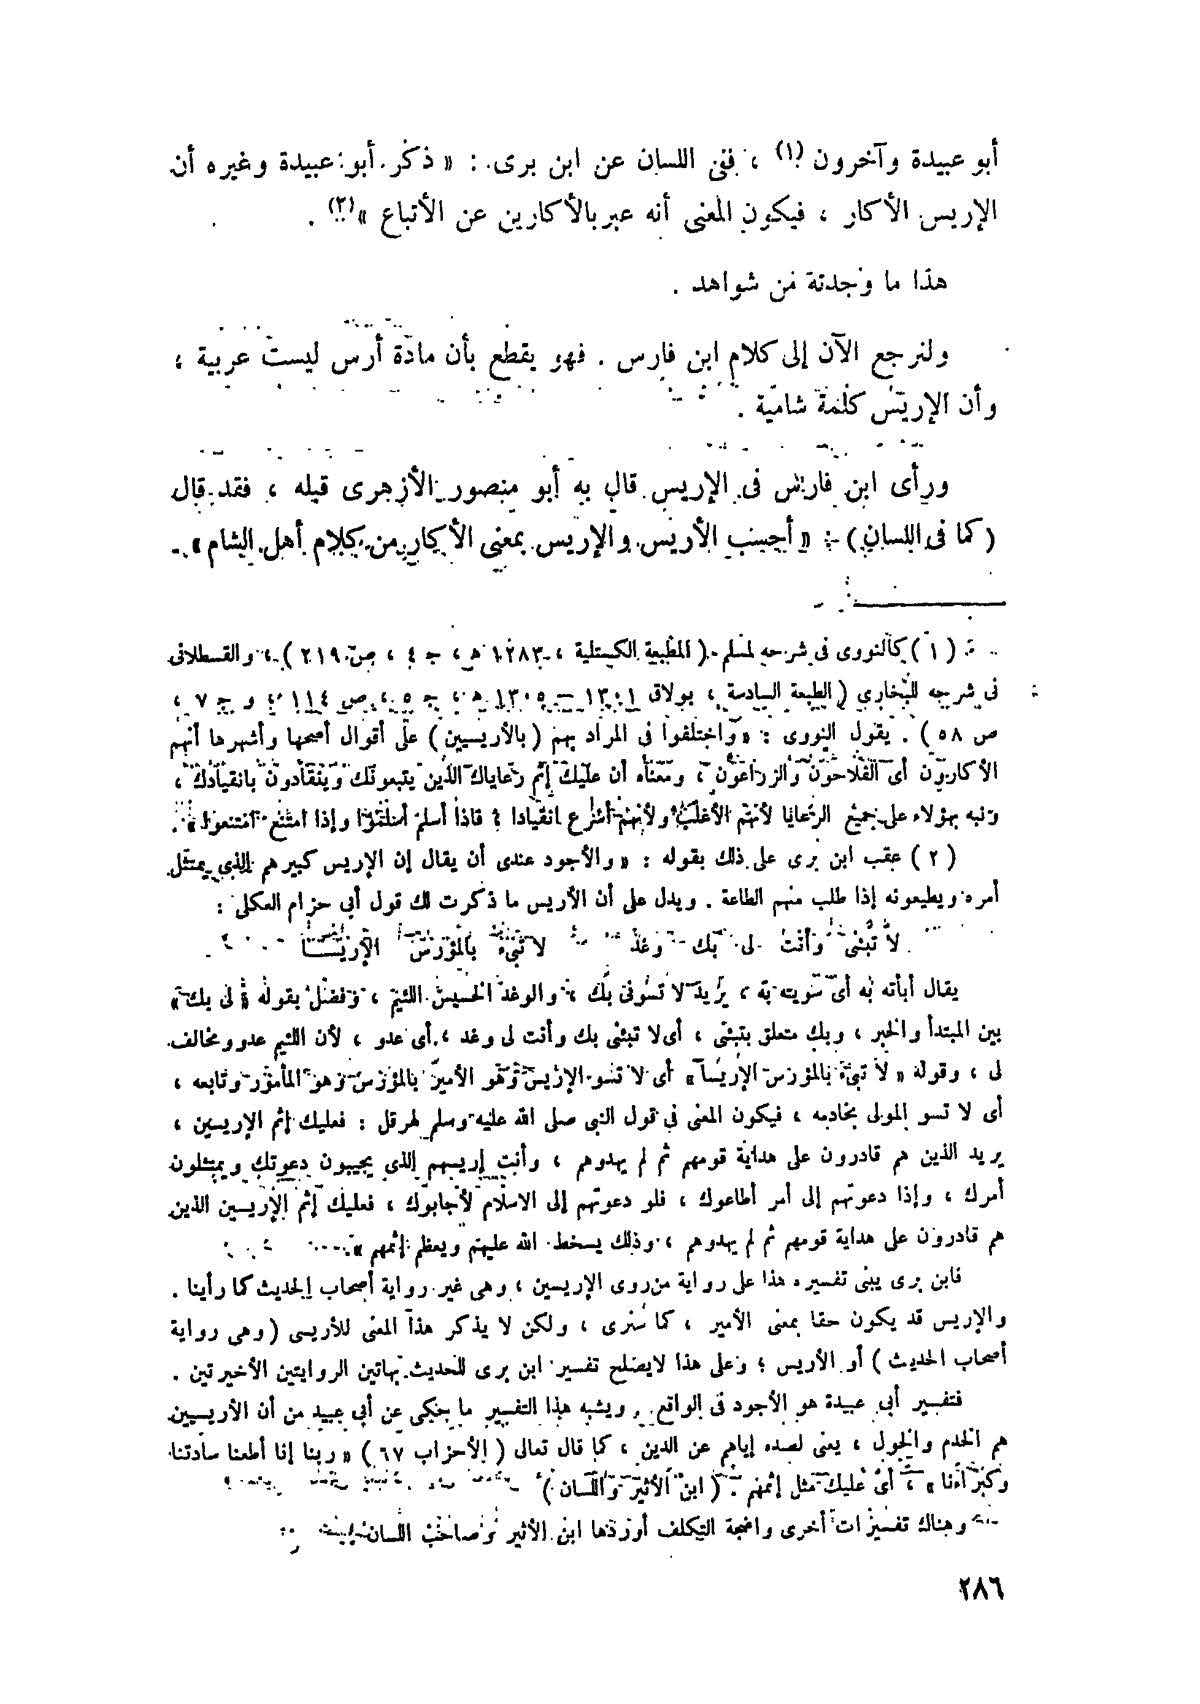 أبو عبيدة وآخرون (١) ، ففى اللسان عن ابن برى : « ذكر أبو عبيدة وغيره أن
الإريس الأكار ، فيكون المعنى أنه عبر بالأكارين عن الأتباع »(٢) .
هذا ما وجدته من شواهد .
ولنرجع الآن إلى كلام ابن فارس . فهو يقطع بأن مادة أرس ليست عربية ،
وأن الإريس كلمة شامية .
ورأى ابن فارس فى الإريس قال به أبو منصور الأزهرى قبله ، فقد قال
( كما فى اللسان ) : « أحسب الأريس والإريس بمعنى الأكار من كلام أهل الشام » .
( ١ ) كالنووى فى شرحه لمسلم ( المطبعة الكستلية ، ١٢٨٣ هـ ، جـ ٤ ، ص ٢١٩ ) ، والقسطلانى
فى شرحه للبخاري ( الطبعة السادسة ، بولاق ١٣٠١ – ١٣٠٥ هـ ، جـ ٥ ، ص ١١٤ ؛ و جـ ٧ ،
ص ٥٨ ) . يقول النووى : « واختلفوا فى المراد بهم ( بالأريسيين ) على أقوال أصحها وأشهرها أنهم
الأكارون أى الفلاحون والزراعون ، ومعناه أن عليك إثم رعاياك الذين يتبعونك وينقادون بانقيادك ،
ونبه بهؤلاء على جميع الرعايا لأنهم الأغلب ولأنهم أسرع انقيادا ؛ فاذا أسلم أسلموا وإذا امتنع امتنعوا » .
( ٢ ) عقب ابن برى على ذلك بقوله : « والأجود عندى أن يقال إن الإريس كبيرهم الذي يمتثل
أمره ويطيعونه إذا طلب منهم الطاعة . ويدل على أن الأريس ما ذكرت لك قول أبي حزام العكلى :
لا تُبئنى وأنت لى بك وغد لا تبئ بالمؤرس الإريسا
يقال أبأته به أى سويته به ، يريد لا تسوفى بك ، والوغد الخسيس اللئيم ، وفصل بقوله « لى بك »
بين المبتدأ والخبر ، وبك متعلق بتبئنى ، أى لا تبئنى بك وأنت لى وغد ، أى عدو ، لأن اللئيم عدو ومخالف
لى ، وقوله « لا تبئ بالمؤرس الإريسا » أى لا تسو الإريس وهو الأمير بالمؤرس وهو المأمور وتابعه ،
أى لا تسو المولى بخادمه ، فيكون المعنى فى قول النبى صلى الله عليه وسلم لهرقل : فعليك إثم الإريسين ،
يريد الذين هم قادرون على هداية قومهم ثم لم يهدوهم ، وأنت إريسهم الذي يجيبون دعوتك ويمتثلون
أمرك ، وإذا دعوتهم إلى أمر أطاعوك ، فلو دعوتهم إلى الاسلام لأجابوك ، فعليك إثم الإريسين الذين
هم قادرون على هداية قومهم ثم لم يهدوهم ، وذلك يسخط الله عليهم ويعظم إثمهم » .
فابن برى يبنى تفسيره هذا على رواية من روى الإريسين ، وهى غير رواية أصحاب الحديث كما رأينا .
والإريس قد يكون حقا بمعنى الأمير ، كما سنرى ، ولكن لا يذكر هذا المعنى للأريسى ( وهى رواية
أصحاب الحديث ) أو الأريس ؛ وعلى هذا لا يصلح تفسير ابن برى للحديث بهاتين الروايتين الأخيرتين .
فتفسير أبى عبيدة هو الأجود فى الواقع . ويشبه هذا التفسير ما يحكى عن أبي عبيد من أن الأريسيين
هم الخدم والخول ، يعنى لصده إياهم عن الدين ، كما قال تعال ( الأحزاب ٦٧ ) « ربنا إنا أطعنا سادتنا
وكبراءنا » ، أى عليك مثل إثمهم . ( ابن الأثير واللسان )
وهناك تفسيرات أخرى واضحة التكلف أوردها ابن الأثير وصاحب اللسان
٢٨٦